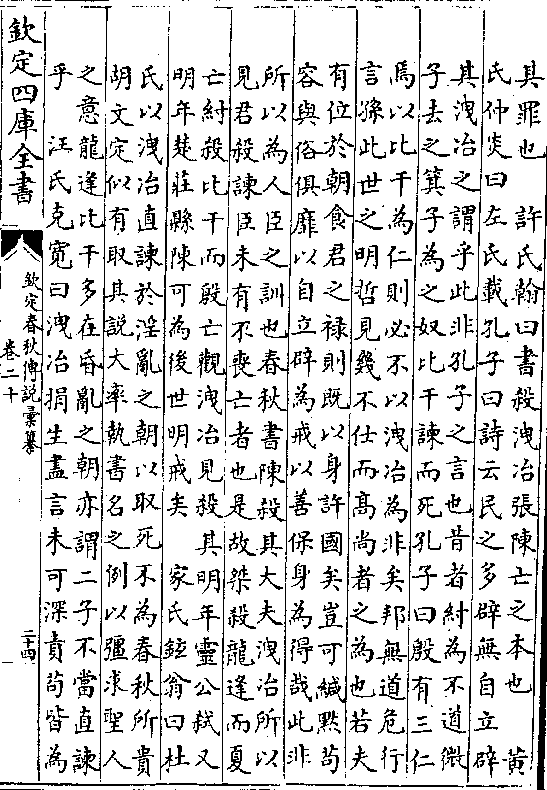 其罪也　許氏翰曰書殺洩冶張陳亡之本也　黃
氏仲炎曰左氏載孔子曰詩云民之多辟無自立辟
其洩冶之謂乎此非孔子之言也昔者紂為不道微
子去之箕子為之奴比干諫而死孔子曰殷有三仁
焉以比干為仁則必不以洩冶為非矣邦無道危行
言孫此世之明哲見幾不仕而高尚者之為也若夫
有位於朝食君之祿則既以身許國矣豈可緘黙苟
容與俗俱靡以自立辟為戒以善保身為得哉此非
所以為人臣之訓也春秋書陳殺其大夫洩冶所以
見君殺諫臣未有不喪亡者也是故桀殺龍逢而夏
亡紂殺比干而殷亡觀洩冶見殺其明年靈公弑又
明年楚莊縣陳可為後世明戒矣　家氏鉉翁曰杜
氏以洩冶直諫於淫亂之朝以取死不為春秋所貴
胡文定似有取其說大率執書名之例以彊求聖人
之意龍逢比干多在昏亂之朝亦謂二子不當直諫
乎　汪氏克寛曰洩冶捐生盡言未可深責茍皆為
欽定四庫全書
欽定春秋傳說彙纂
卷二十
二十四